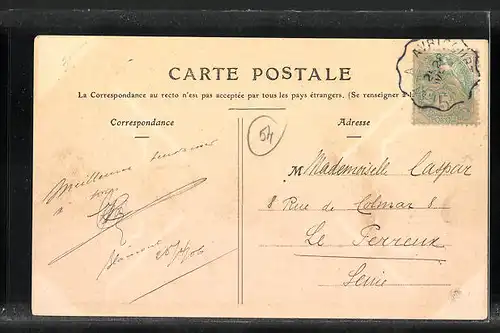 CARTE POSTALE
La Correspondance au recto n'est pas acceptée par tous les pays étrangers. (Se renseigner à la
Correspondance
Adresse
54
AVRICOURT
5
Mademoiselle Caspar
8 Rue de Colmar 8
Le Perreux
Seine
à tous